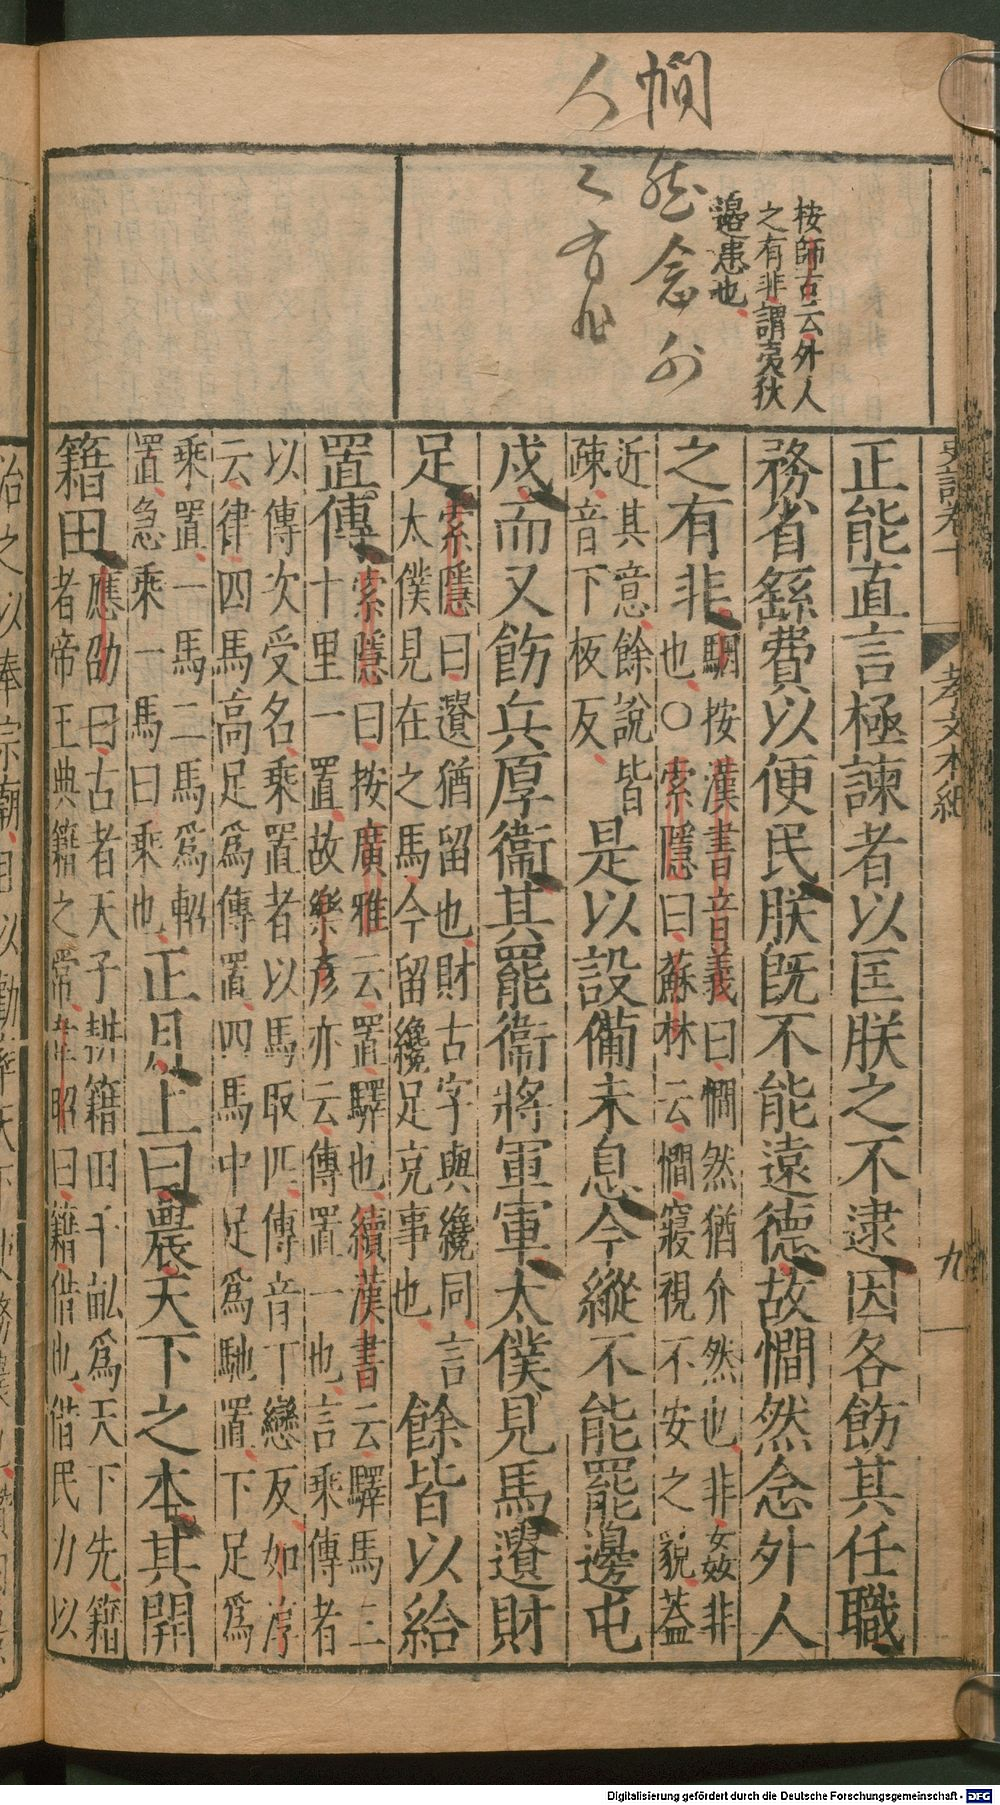 憪然念外
人之有非
按師古云外人
之有非謂夷狄
邊患也
孝文本紀
九
正能直言極諫者以匡朕之不逮因各飭其任職
務省繇費以便民朕旣不能遠德故憪然念外人
之有非
駰按漢書音義曰憪然猶介然也非姦非
也○索隱曰蘇林云憪寢視不安之貌蓋
近其意餘說皆
疎音下板反
是以設備未息今縱不能罷邊屯
戍而又飭兵厚衞其罷衞將軍軍太僕見馬遺財
足
索隱曰遺猶留也財古字與纔同言
太僕見在之馬今留纔足充事也
餘皆以給
置傳
索隱曰按廣雅云置驛也續漢書云驛馬三
十里一置故樂彥亦云傳置一也言乘傳者
以傳次受名乘置者以馬取匹傳音丁戀反如淳
云律四馬高足爲傳置四馬中足爲馳置下足爲
乘置一馬二馬爲軺
置急乘一馬曰乘也
正月上曰農天下之本其開
籍田
應劭曰古者天子耕籍田千畝爲天下先籍
者帝王典籍之常韋昭曰籍借也借民力以
Digitalisierung gefördert durch die Deutsche Forschungsgemeinschaft - DFG